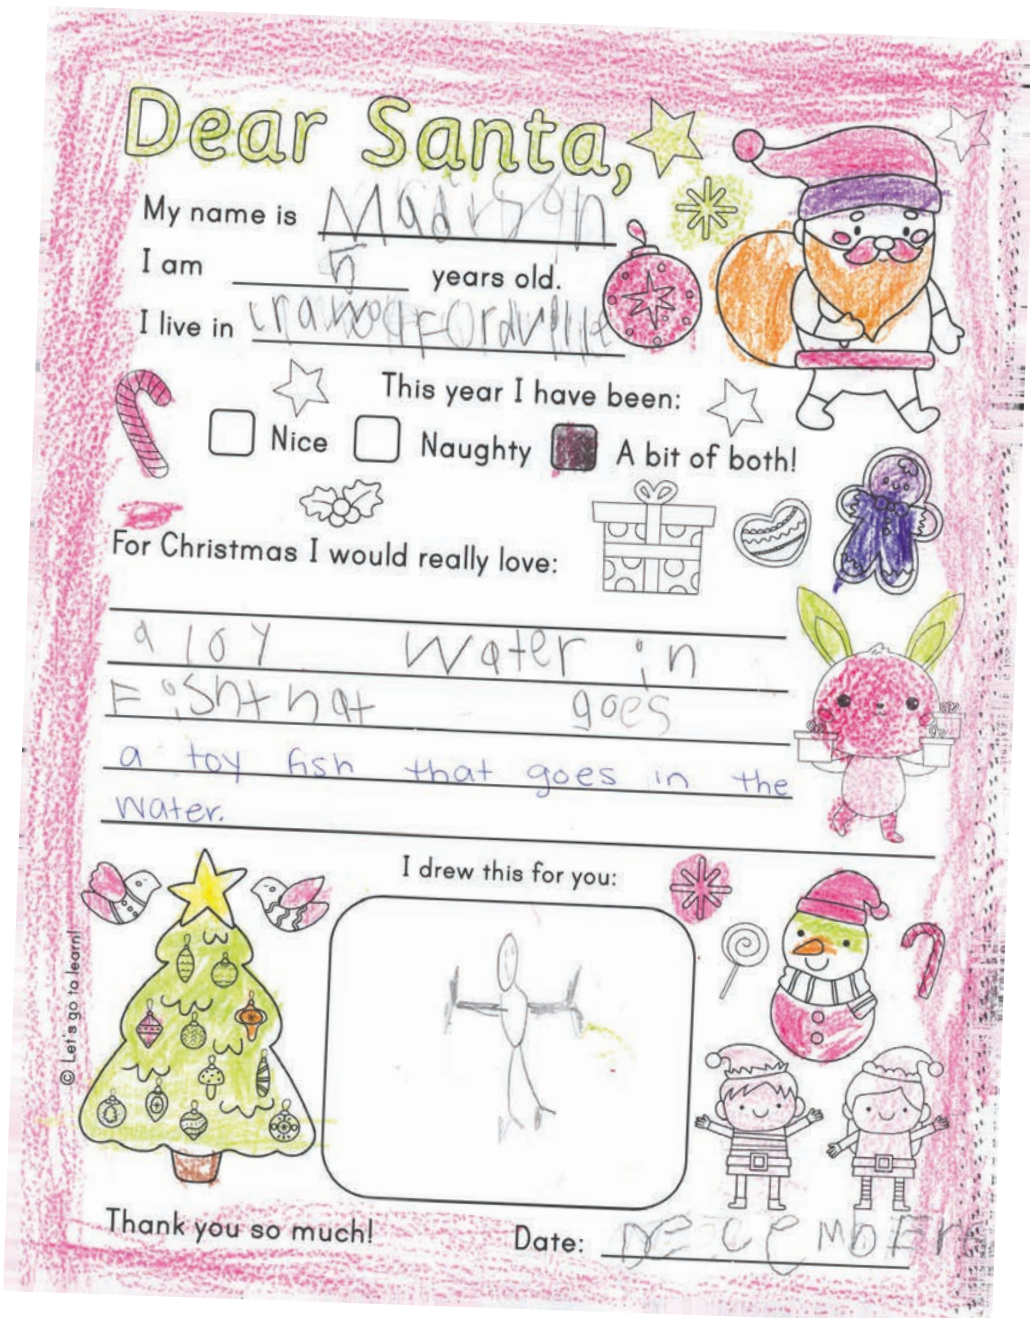 Dear Santa,
My name is Madison
I am 5 years old.
I live in crawfordville
This year I have been:
Nice Naughty A bit of both!
For Christmas I would really love:
a toy water in
Fishthat goes
a toy fish that goes in the
water.
I drew this for you:
© Let's go to learn!
Thank you so much!
Date: DECEMBER